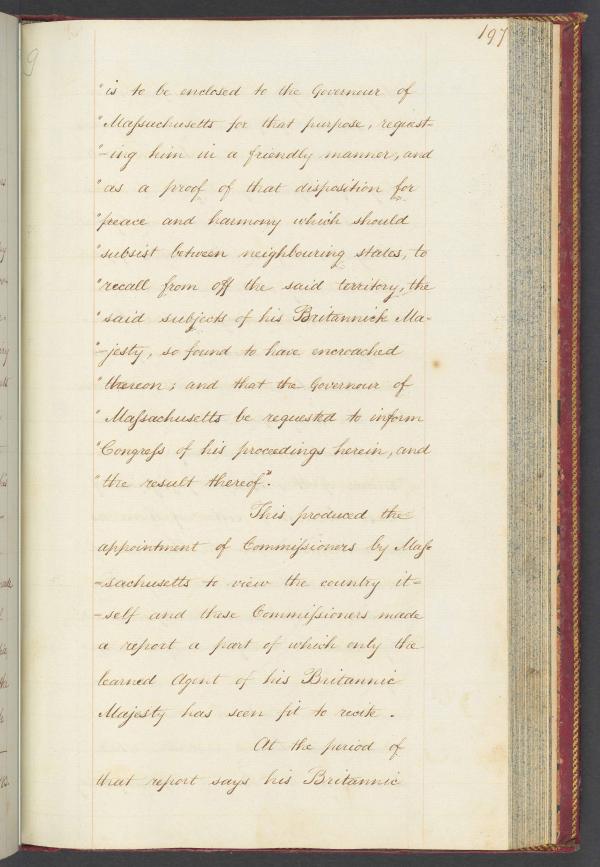 197
"is to be enclosed to the Governour of
"Maſsachusetts for that purpose, request-
"-ing him in a friendly manner, and
"as a proof of that disposition for
"peace and harmony which should
"subsist between neighbouring states, to
"recall from off the said territory, the
"said subjects of his Britannick Ma-
"-jesty, so found to have encroached
"thereon; and that the Governour of
"Maſsachusetts be requested to inform
"Congreſs of his proceedings herein, and
"the result thereof".
This produced the
appointment of Commiſsioners by Maſs-
-sachusetts to view the country it-
-self and these Commiſsioners made
a report a part of which only the
learned Agent of his Britannic
Majesty has seen fit to recite.
At the period of
that report says his Britannic